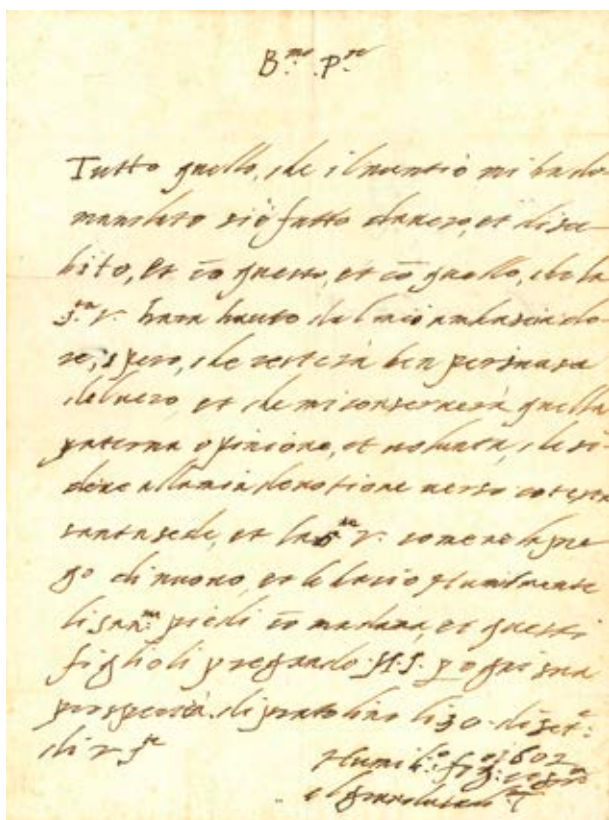 B.mo P.re
Tutto quello, che il nuntio mi ha do-
mandato si è fatto da vero, et di su-
bito, et cō questo, et cō quello, che la
S.tà V. harà hauto dal mio ambasciado-
re, spero, che resterà ben persuasa
del vero, et che mi conserverà quella
paterna opinione, et voluntà, che si
deve alla mia devotione verso cotesta
santa sede, et la S.tà V. come ne la pre-
go di nuovo, et le bacio humilmente
li san.mi piedi cō madama, et questi
figlioli pregando N.S. p ogni sua
prosperità. di pratolino li 30. di set.e
1602
di V. S.tà
Humil.o
el granduca di T